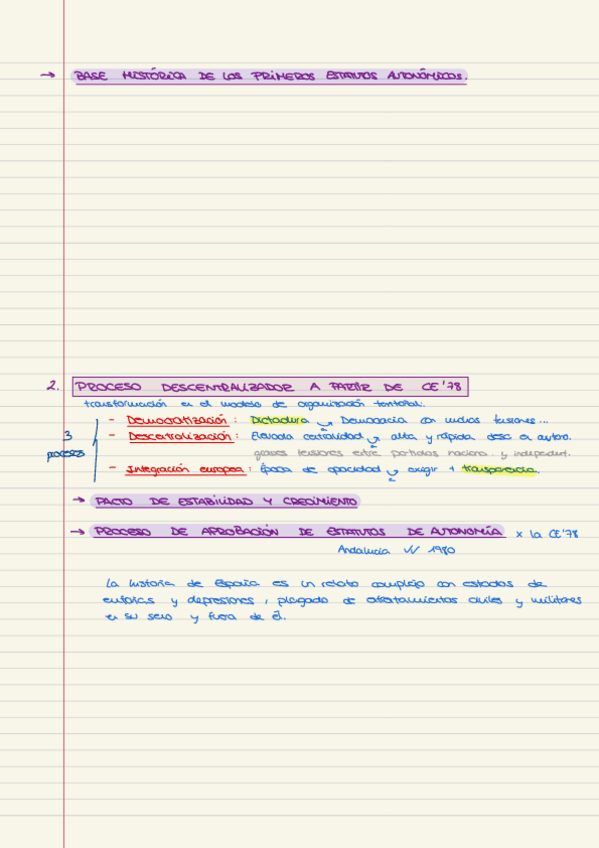 → BASE HISTÓRICA DE LOS PRIMEROS ESTATUTOS AUTONÓMICOS.
2. PROCESO DESCENTRALIZADOR A PARTIR DE CE'78
transformación en el modelo de organización territorial.
3 procesos
- Democratización: Dictadura → Democracia con muchas tensiones...
- Descentralización: Elevada centralidad → alta y rápida desc en autono.
graves tensiones entre partidos naciona. y independent.
- Integración europea: Época de opacidad → exigir + transparencia.
→ PACTO DE ESTABILIDAD Y CRECIMIENTO
→ PROCESO DE APROBACIÓN DE ESTATUTOS DE AUTONOMÍA x la CE'78
Andalucía 1980
La historia de España es un relato complejo con estados de
euforias y depresiones, plagado de enfrentamientos civiles y militares
en su seno y fuera de él.